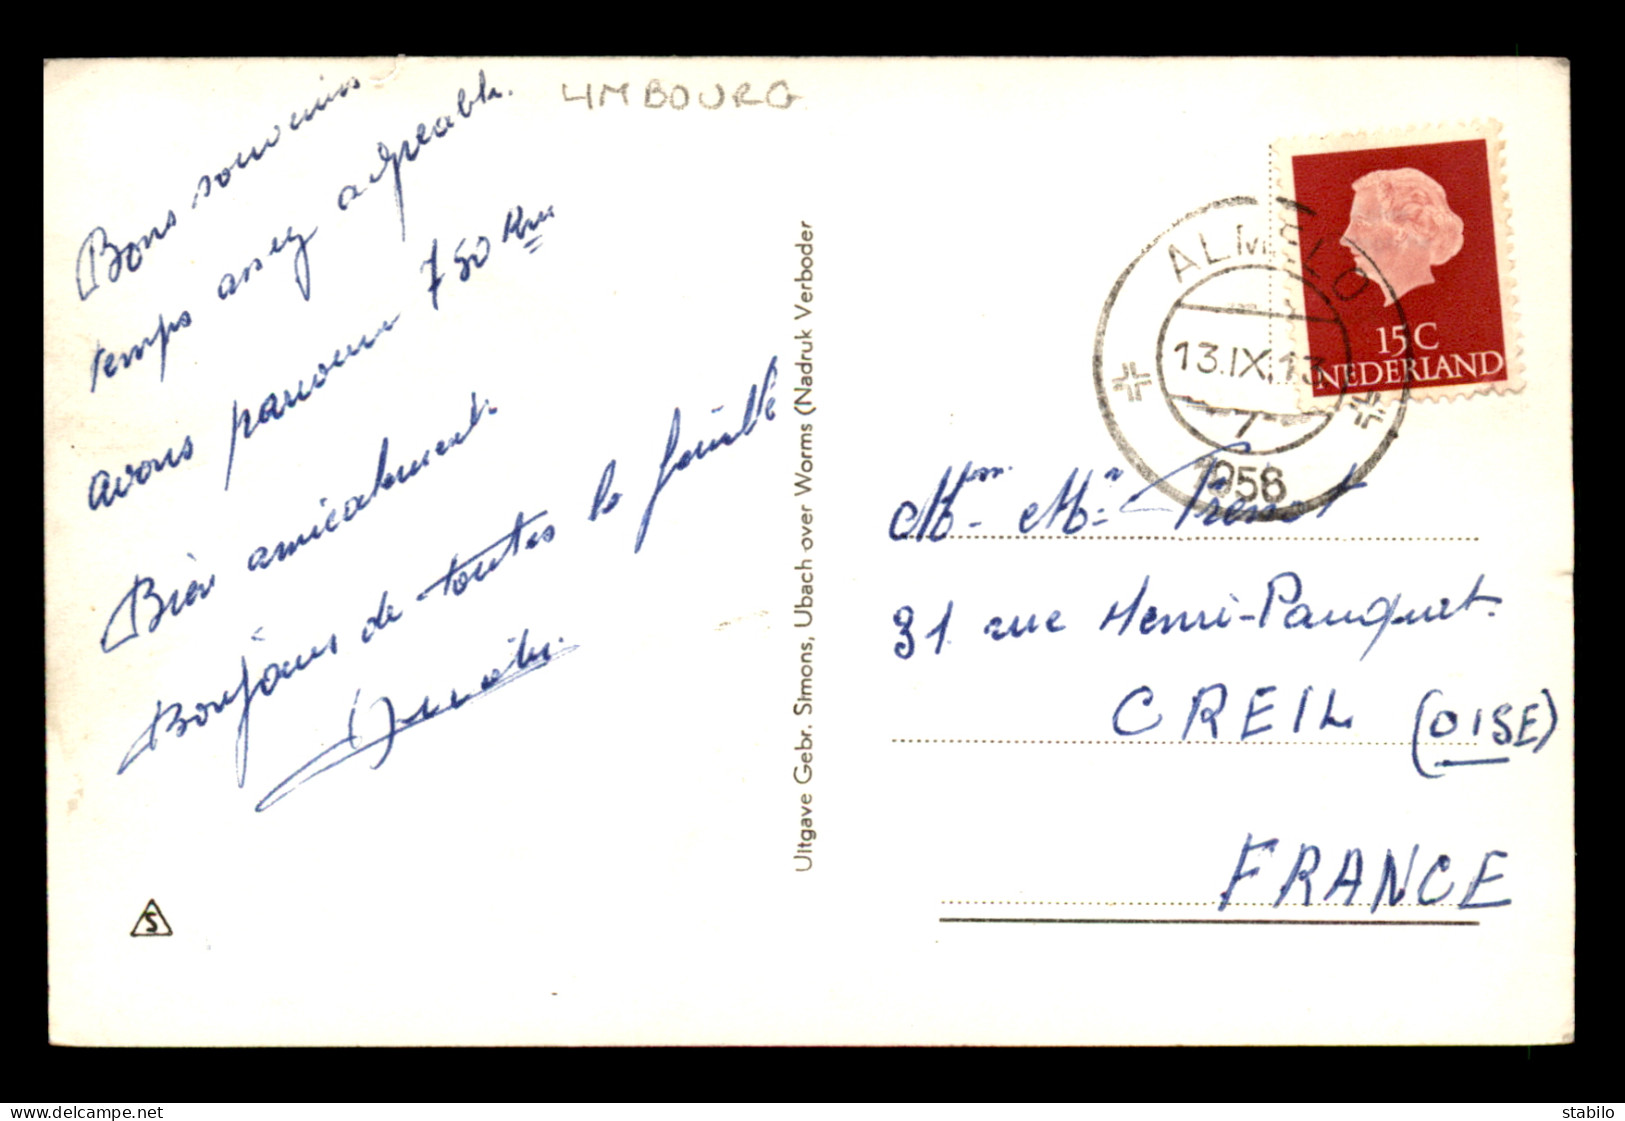 LIMBOURG
Bons souvenirs
temps assez agréable.
avons parcouru 750 Km
Bien amicalement.
Bonjours de toutes la famille
S
Uitgave Gebr. Simons, Ubach over Worms (Nadruk Verboder
ALMELO
13.IX.13
1958
15C
NEDERLAND
Mm. Mr
31 rue Henri-Pauquet.
CREIL (OISE)
FRANCE
delcampe.net
stabilo